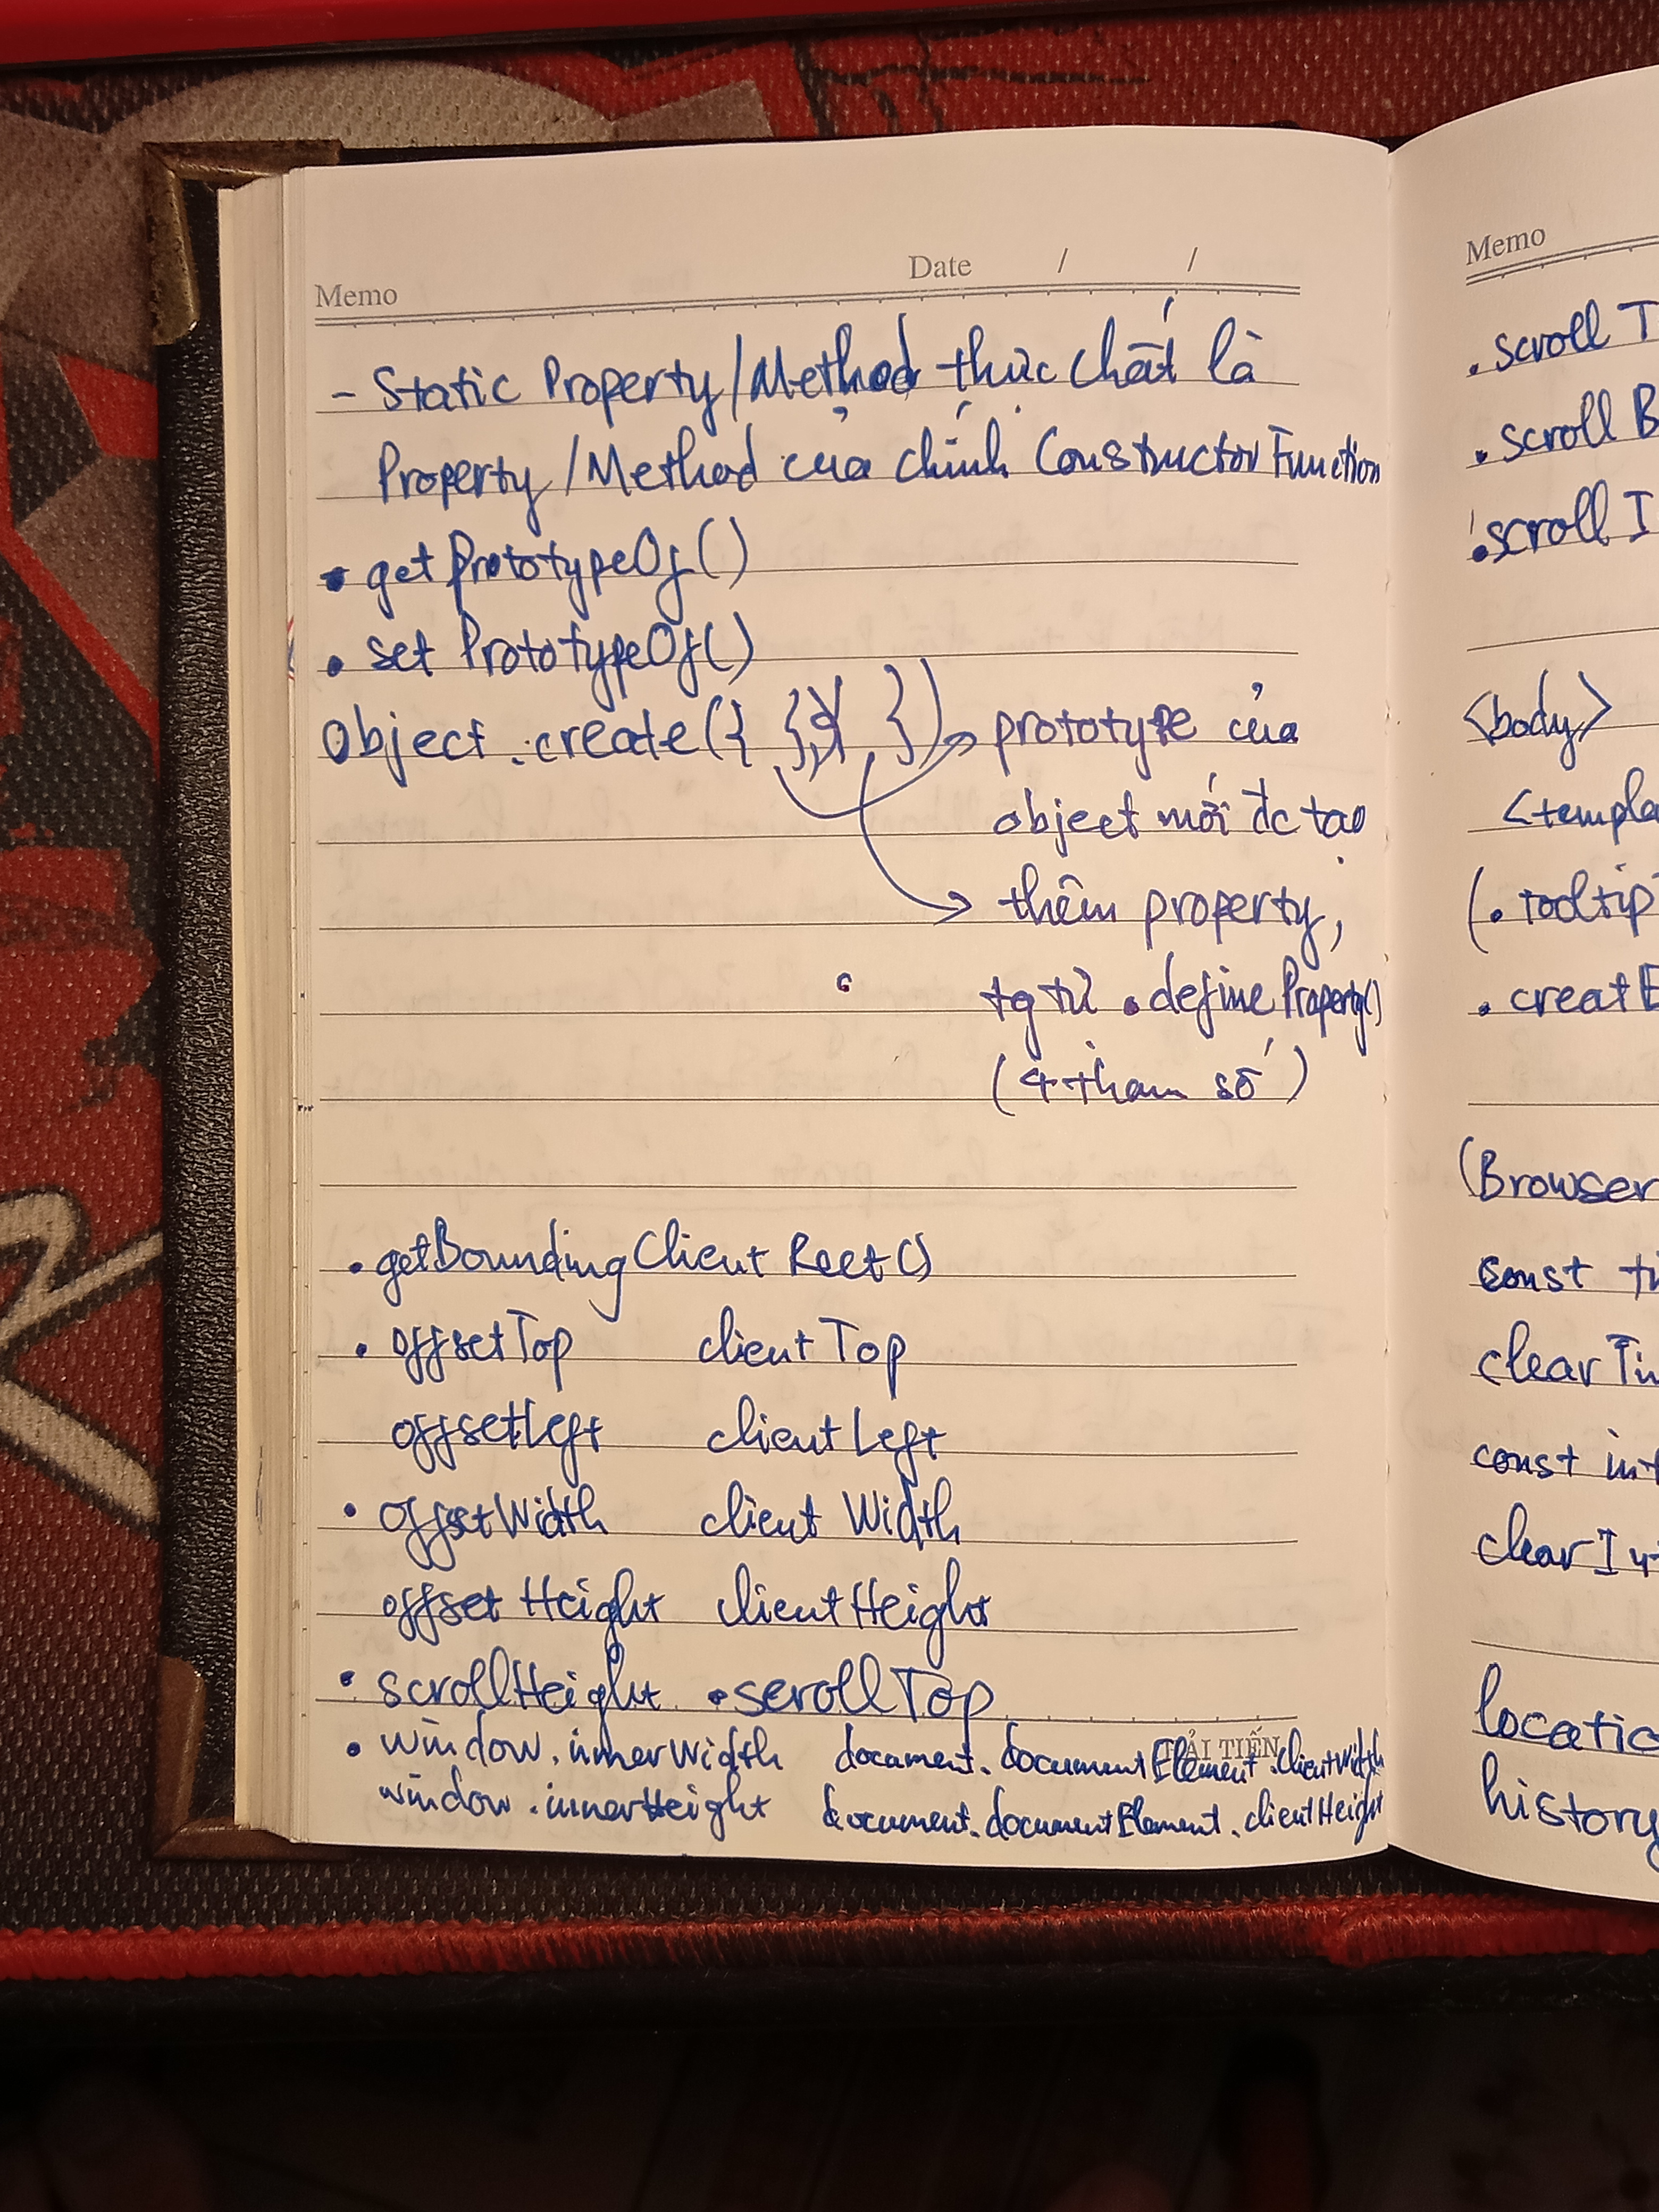 Memo Date / /
- Static Property/Method thực chất là
Property/Method của chính Constructor Function
• getPrototypeOf()
• setPrototypeOf()
Object.create({ }, { }) → prototype của
object mới đc tạo
→ thêm property,
tg tự .defineProperty()
(4 tham số)
• getBoundingClientRect()
• offsetTop clientTop
offsetLeft clientLeft
• offsetWidth clientWidth
offsetHeight clientHeight
• scrollHeight • scrollTop
HẢI TIẾN
• window.innerWidth document.documentElement.clientWidth
window.innerHeight document.documentElement.clientHeight
Memo
.scroll T
.scroll B
.scroll I
<body>
<templa
(. tooltip
. creatE
(Browser
const ti
clearTi
const int
clearInt
locatio
history